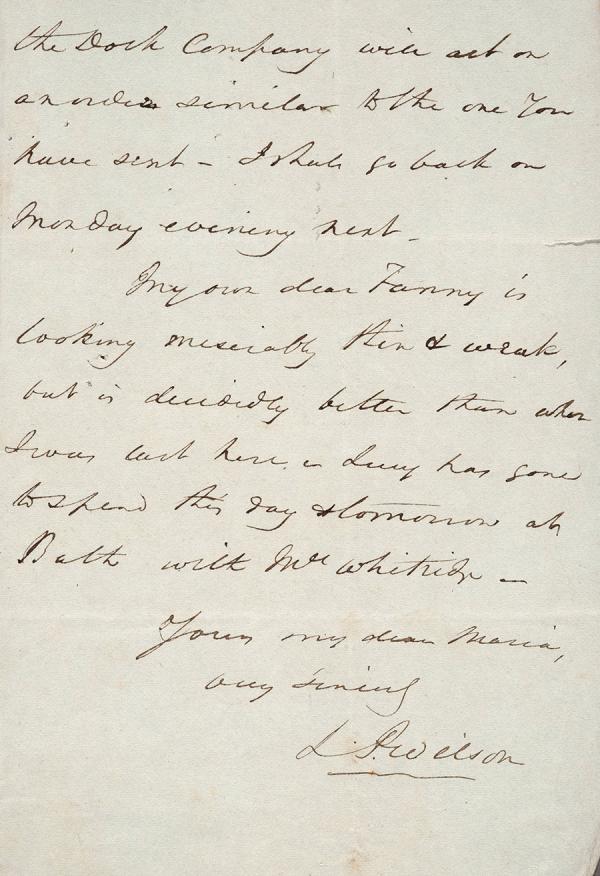 the Dock Company will act on
an order similar to the one You
have sent – I shall go back on
Monday evening next –
My own dear Fanny is
looking miserably thin & weak,
but is decidedly better than when
I was last here. – Lucy has gone
to spend this day & tomorrow at
Bath with Mrs Whitridge –
Yours my dear Maria,
very sincerely
L. P. Wilson